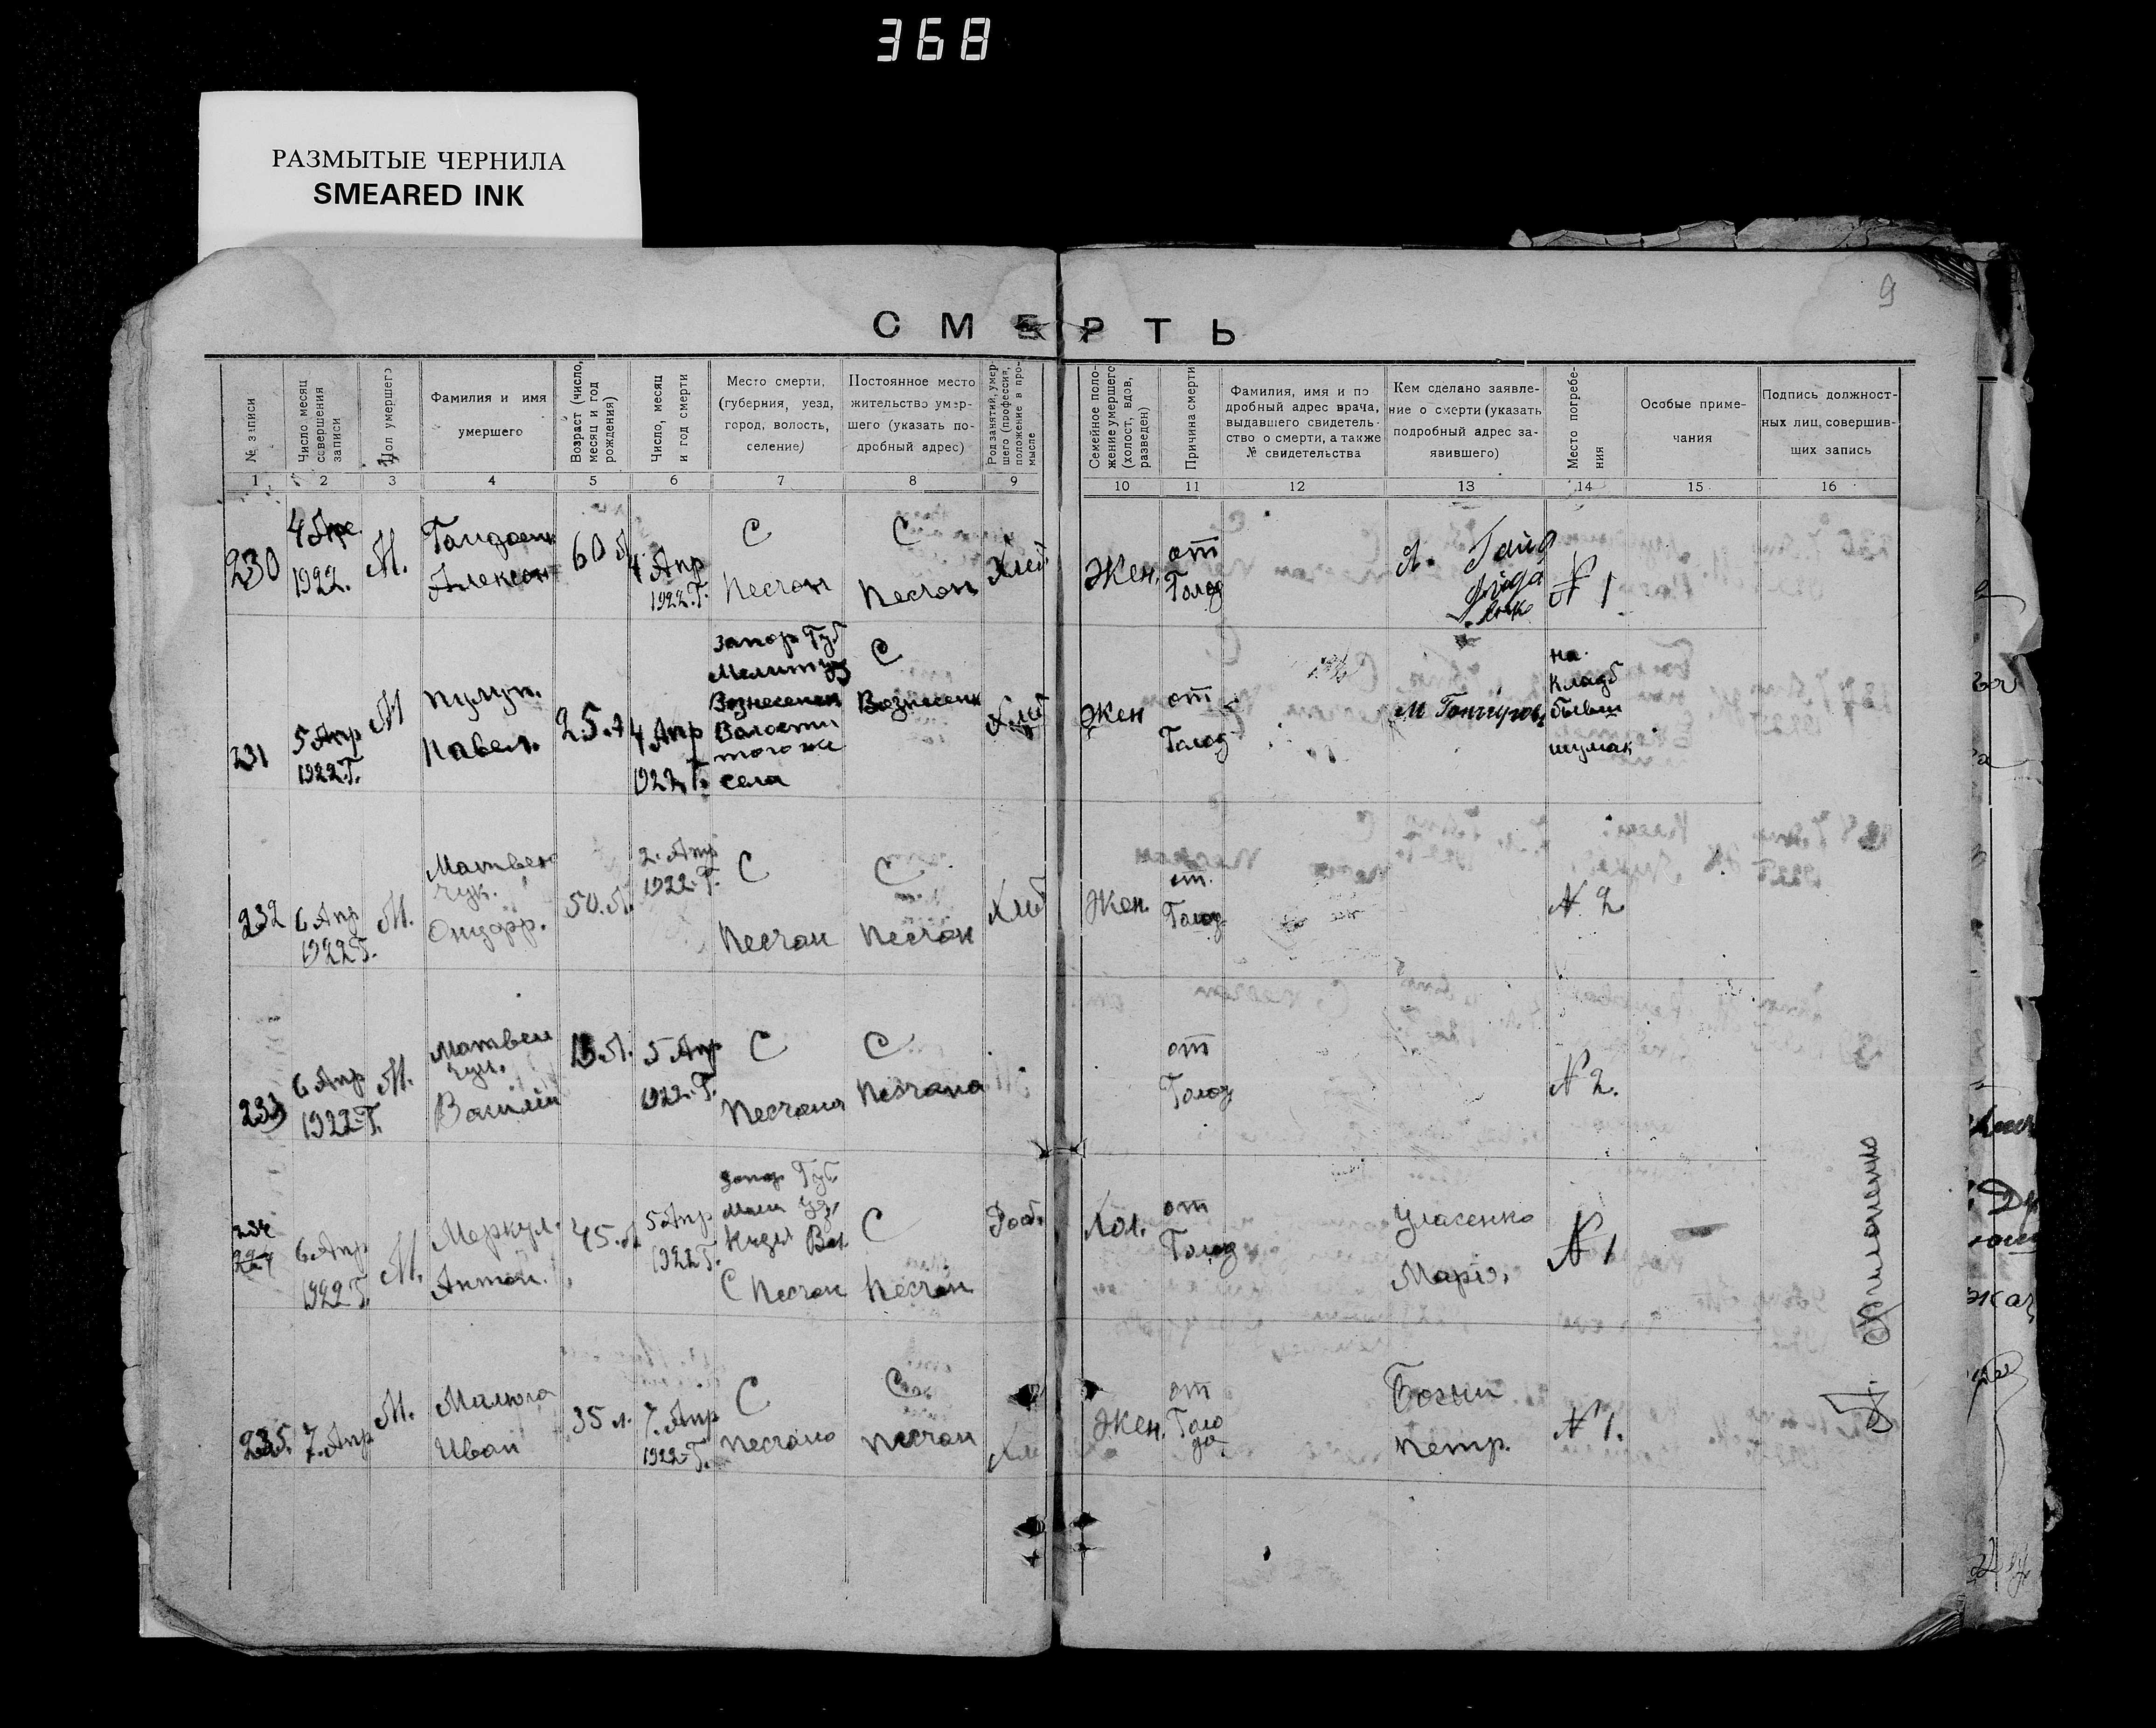 368
РАЗМЫТЫЕ ЧЕРНИЛА
SMEARED INK
9
СМЕРТЬ
№ записи
Число месяц
совершения
записи
Пол умершего
Фамилия и имя
умершего
Возраст (число,
месяц и год
рождения)
Число, месяц
и год смерти
Место смерти,
(губерния, уезд,
город, волость,
селение)
Постоянное место
жительство умер-
шего (указать по-
дробный адрес)
Род занятий, умер-
шего (профессия,
положение в про-
мысле
Семейное поло-
жение умершего
(холост, вдов,
разведен)
Причина смерти
Фамилия, имя и по
дробный адрес врача,
выдавшего свидетель-
ство о смерти, а также
№ свидетельства
Кем сделано заявле-
ние о смерти (указать
подробный адрес за-
явившего)
Место погребе-
ния
Особые приме-
чания
Подпись должност-
ных лиц, совершив-
ших запись
1 2 3 4 5 6 7 8 9 10 11 12 13 14 15 16
230
4 Апр
1922.
М.
60 л
4 Апр
1922.Г.
С
Песчан
С
Песчан
Хлеб
Жен.
от
Голод
№ 1
231
5 Апр
1922.Г.
М
Павел.
25.л
4 Апр
1922.Г.
Запор Губ
Мелит уз
Вознесенск
Волости
того же
села
С
Вознесенк
Хлеб
Жен
от
Голод
на
Кладб
бывш
232
6 Апр
1922 Г.
М.
Матвей
чук.
Онуфр.
50.Л.
2. Апр
1922.Г.
С
Песчан
С
Песчан
Хлеб
Жен.
от.
Голод
№ 2
233
6 Апр
1922.Г.
М.
Матвей
чук.
Василий
13.Л.
5 Апр
1922.Г.
С
Песчана
С
Песчана
от
Голод
№ 2.
234
6 Апр
1922 Г.
М.
Меркул.
Антон.
45.л
5 Апр
1922 Г.
Запор Губ.
С Песчан
С
Песчан
Хол.
от
Голод
Уласенко
Марія.
№ 1
235.
7. Апр
М.
Малюга
Иван
35 л.
7. Апр
1922.Г.
С
Песчана
С
Песчан
Жен.
от
Голо
да
Петр.
№ 1.